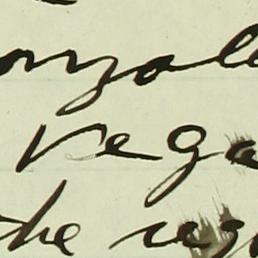 onzale
Vega
the